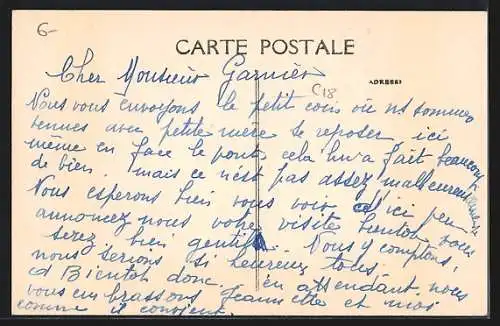 6-
CARTE POSTALE
ADRESSE
C18
Cher Monsieur Garnier
Nous vous envoyons le petit coin où nt sommes
venues avec petite mère se reposer ici
même en face le pont cela lui a fait beaucoup
de bien. mais ce n'est pas assez malheureusement
Nous esperons bien vous voir d'ici peu
annoncez nous votre visite bientôt vous
serez bien gentil. Nous y comptons,
nous serions si heureux tous.
à Bientôt donc. en attendant nous
vous embrassons Jeannette et moi
comme il convient.